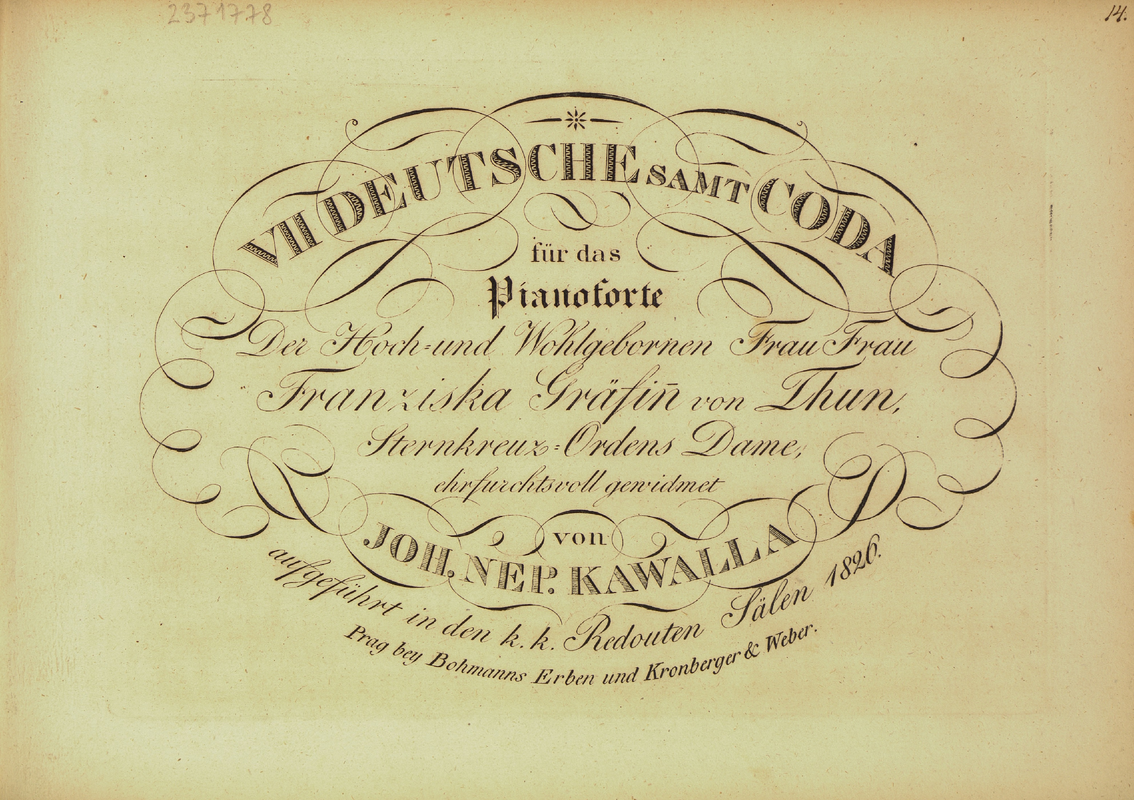 2371778
14.
VII DEUTSCHE SAMT CODA
für das
Pianoforte
Der Hoch-und Wohlgebornen Frau Frau
Franziska Gräfin̄ von Thun,
Sternkreuz-Ordens Dame,
ehrfurchtsvoll gewidmet
von
JOH. NEP. KAWALLA
aufgeführt in den k. k. Redouten Sälen 1826.
Prag bey Bohmanns Erben und Kronberger & Weber.